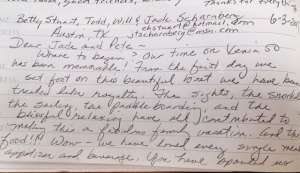 Betty Stuart, Todd, Will & Jade Scharnberg 6-3-
Austin, TX jtscharnberg@msn.com
Dear Jade and Pete -
Where to begin? Our time on Xenia 50
has been memorable! From the first day we
set foot on this beautiful boat we have been
treated like royalty. The sights, the
the sailing, the paddle boarding, and the
blissful relaxing have all contributed to
making this a fabulous family vacation. And the
food!!! Wow - we have loved every single meal
appetizer and beverage. You have exposed us